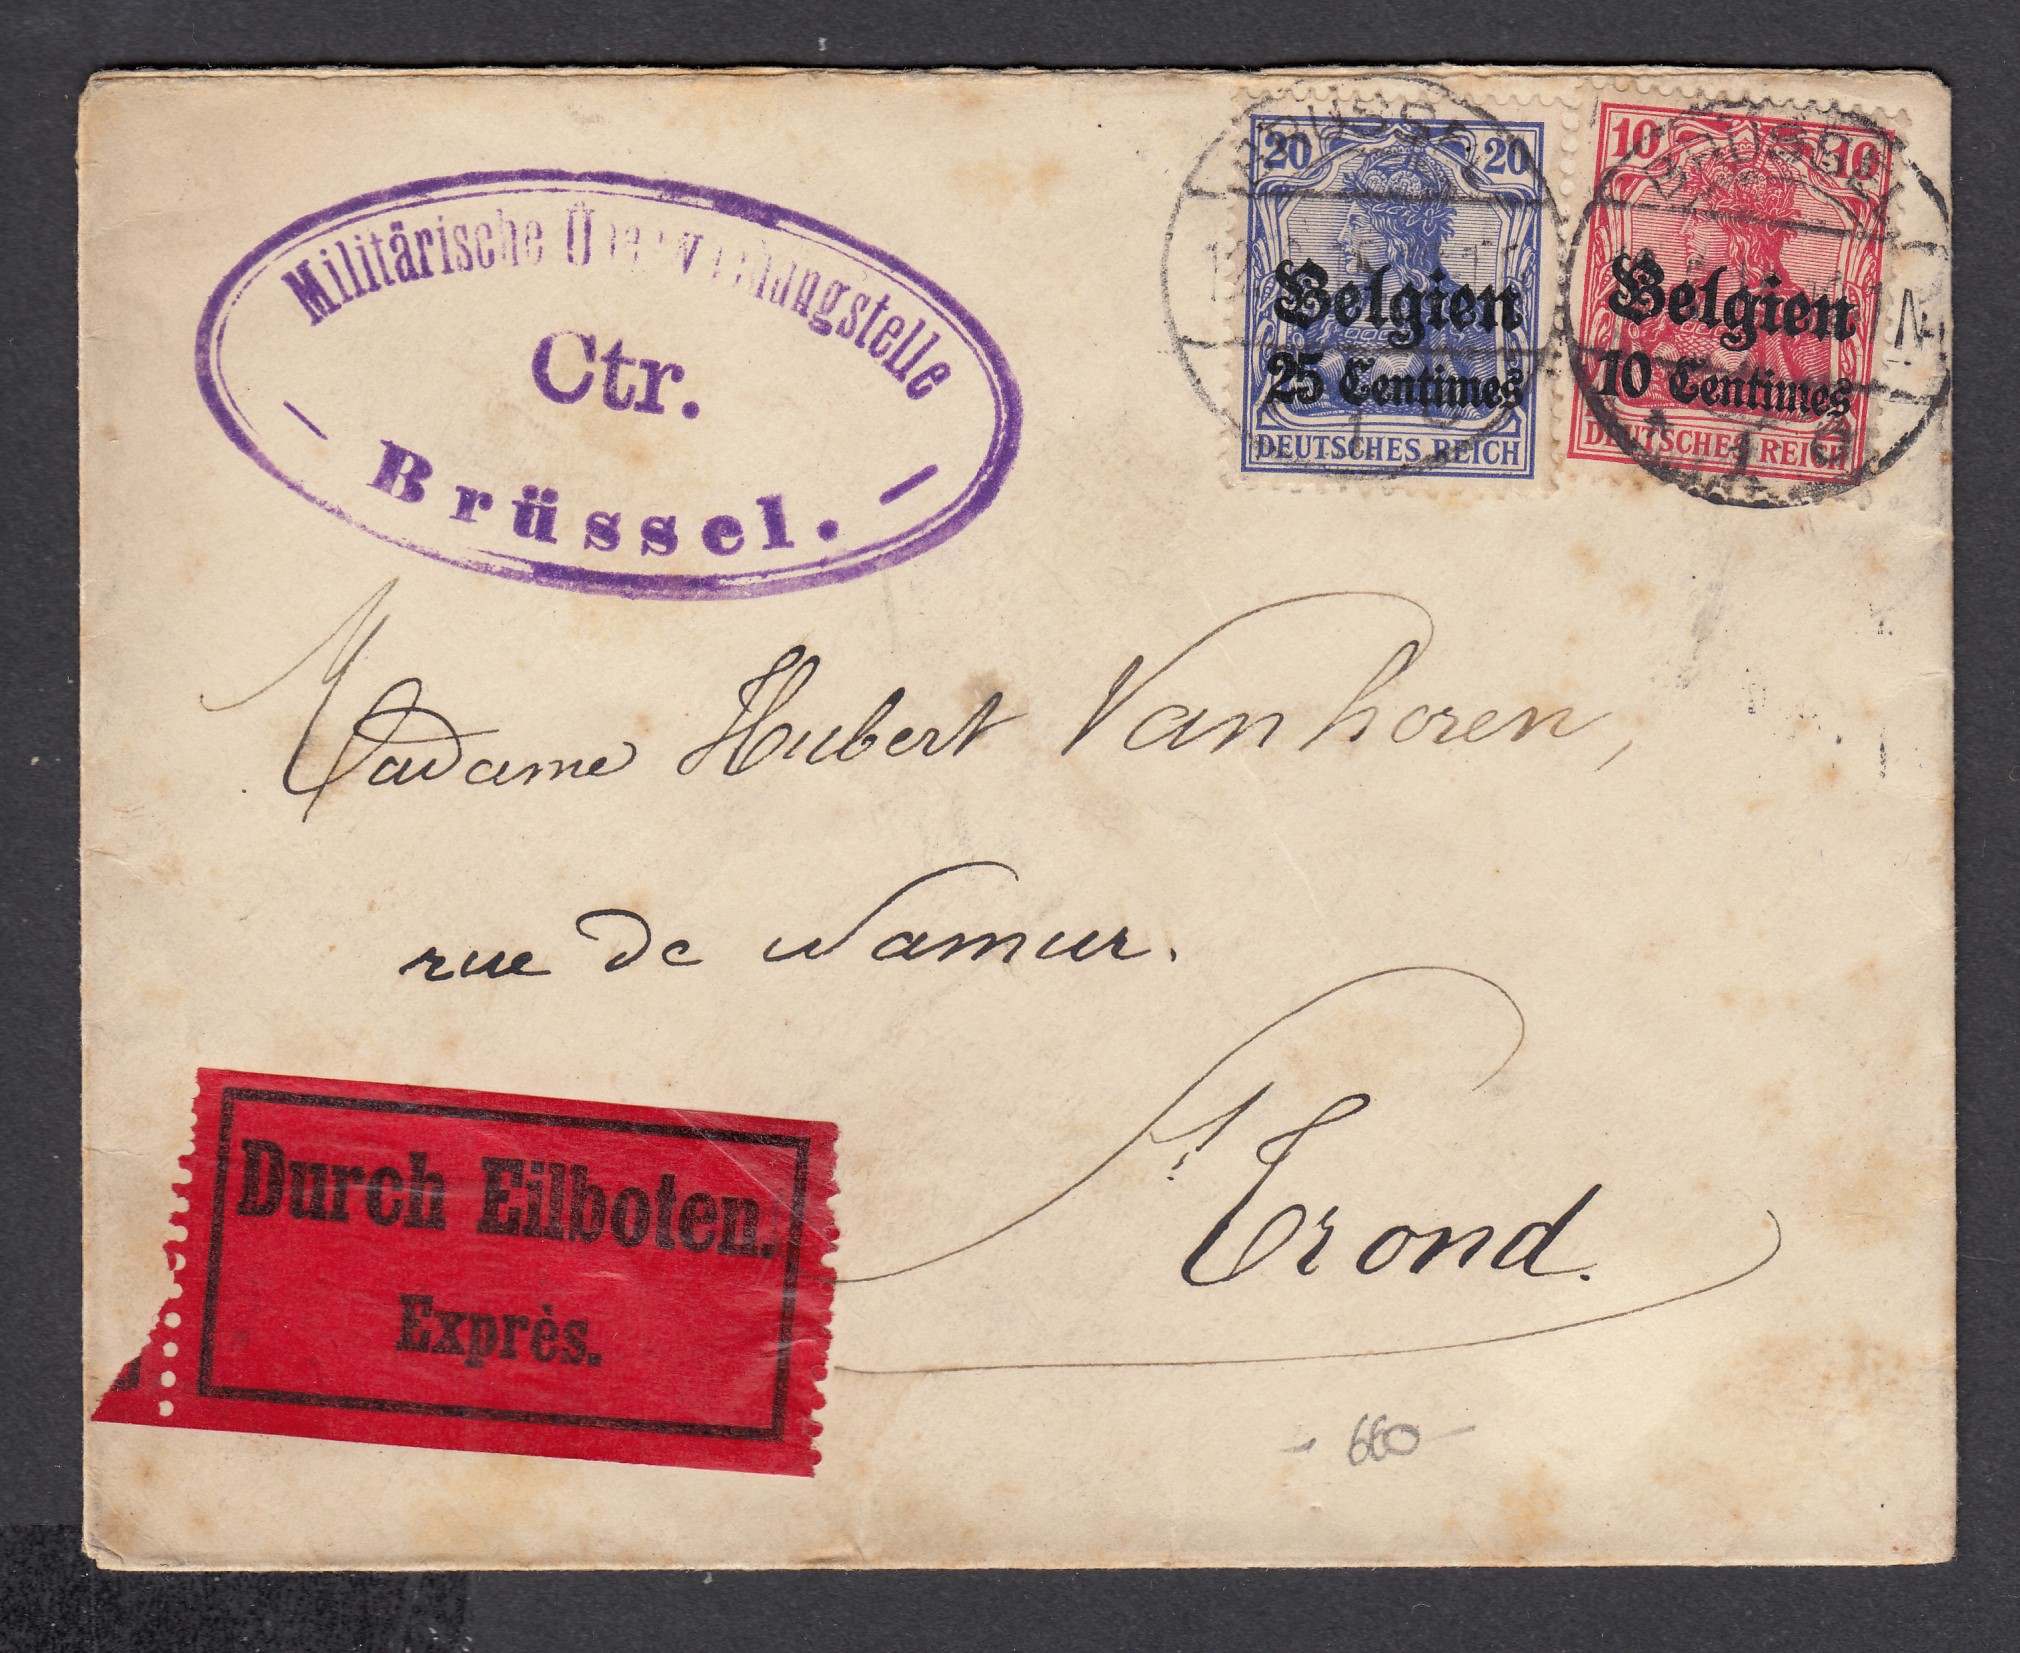 Militärische Überwachungstelle
Ctr.
Brüssel.
BRÜSSEL
20 20
Belgien
25 Centimes
DEUTSCHES REICH
1
BRÜSSEL
10 10
Belgien
10 Centimes
DEUTSCHES REICH
1
Madame Hubert Vanhoren,
rue de Namur.
St Trond.
Durch Eilboten.
Exprès.
- 660 -